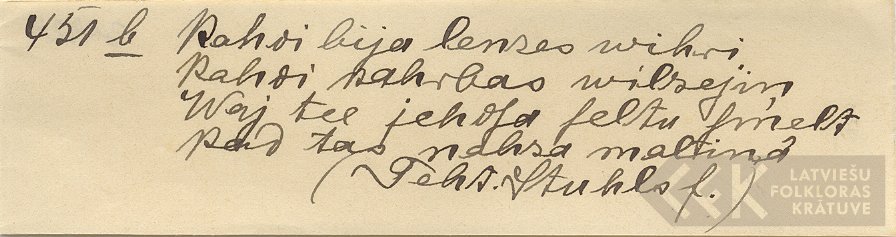 451 b Kahdi bija lenzes wihri,
Kahdi kahrbas wilzejiņ
Waj tee jehdsa seltu smelt
Kad tas nahza maliņā
(Teht. Stuhls f.)
LATVIEŠU
FOLKLORAS
KRĀTUVE